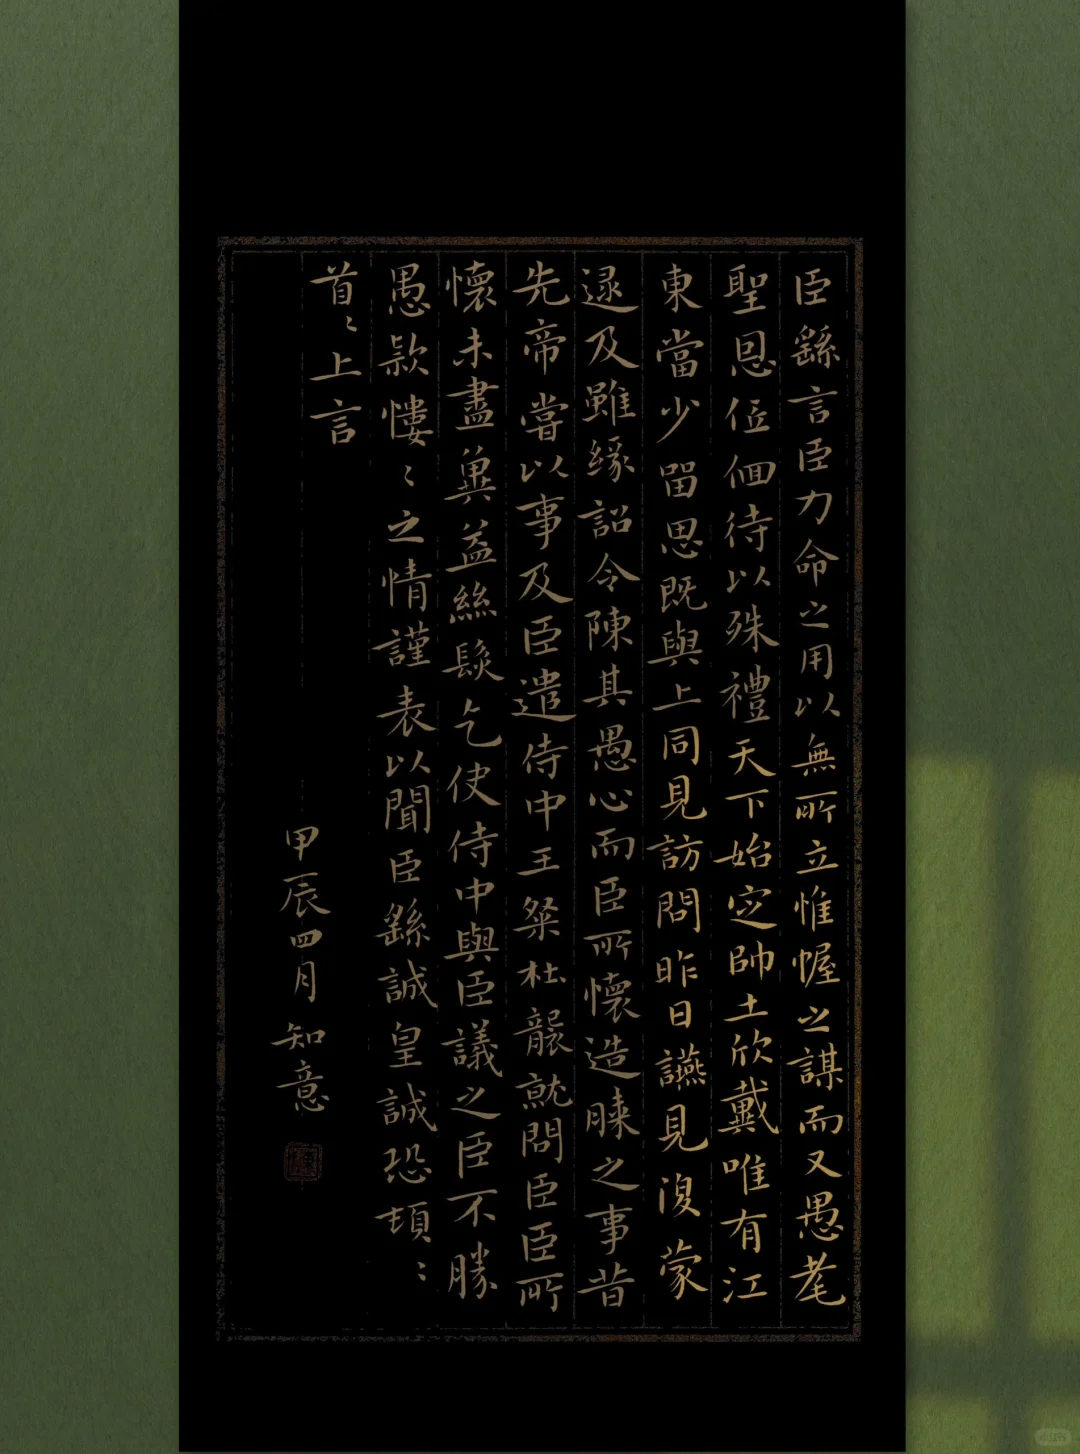 臣繇言臣力命之用以無所立惟幄之謀而又愚耄
聖恩低佪待以殊禮天下始定帥土欣戴唯有江
東當少留思既與上同見訪問昨日讌見復蒙
逮及雖緣詔令陳其愚心而臣所懷造膝之事昔
先帝嘗以事及臣遣侍中王粲杜襲就問臣臣所
懷未盡冀益絲髮乞使侍中與臣議之臣不勝
愚款慺〻之情謹表以聞臣繇誠皇誠恐頓〻
首〻上言
甲辰四月知意
小红书